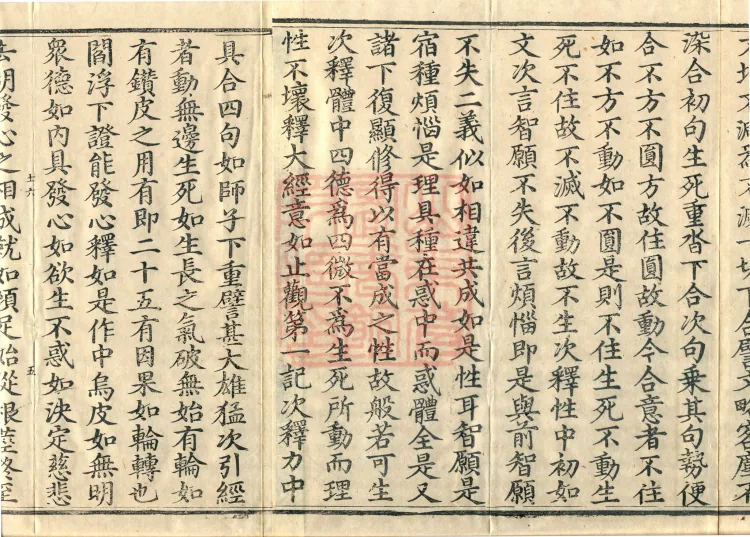 深合初句生死重沓下合次句乗其句勢便
合不方不圓方故住圓故動今合意者不住
如不方不動如不圓是則不住生死不動生
死不住故不滅不動故不生次釋性中初如
文次言智願不失後言煩惱即是與前智願
不失二義似如相違共成如是性耳智願是
宿種煩惱是理具種在惑中而惑體全是又
諸下復顯修得以有當成之性故般若可生
次釋體中四德爲四微不爲生死所動而理
性不壞釋大經意如止觀第一記次釋力中
具合四句如師子下重譬甚大雄猛次引經
者動無邊生死如生長之氣破無始有輪如
有鑚皮之用有即二十五有因果如輪轉也
閻浮下證能發心釋如是作中烏皮如無明
衆德如內具發心如欲生不惑如決定慈悲
五